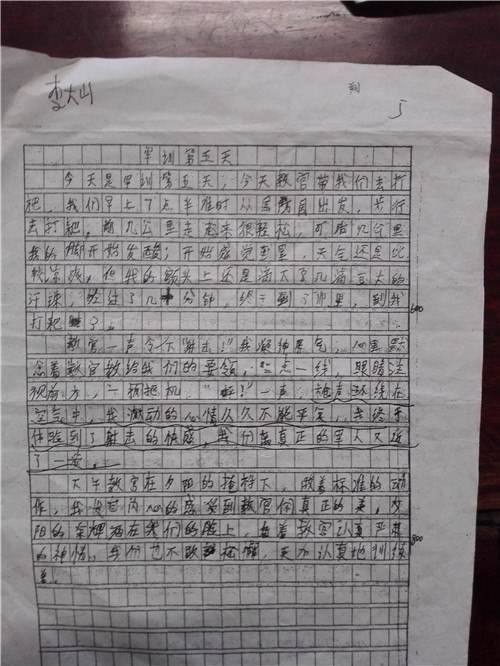 李大山
5
军训第五天
今天是军训第五天,今天教官带我们去打
靶,我们早上7点半准时从出发,步行
去打靶,前几公里走起来很轻松,可后几公里
我的脚开始发酸,开始感觉重,天气还是比
较凉的,但我的额头上还是滴下了几滴豆大的
汗珠,经过了几十分钟,终于到了那里,到我
打靶了。
600
教官一声令下"射击!"我凝神屏气,心里默
念着教官教给我们的要领,三点一线,眼睛注
视前方,一扣扳机,"!"一声,枪声环绕在
空气中,我激动的心情久久不能平复,我终于
体验到了射击的快感,离真正的军人又近
了一步。
下午教官在夕阳的指持下,做着标准的动
作,我发自内心的感受到教官们真正的美,夕
阳的余晖洒在我们的脸上,看着教官认真严肃
的神情,我们也不敢松懈,更加认真地训练
着。
800